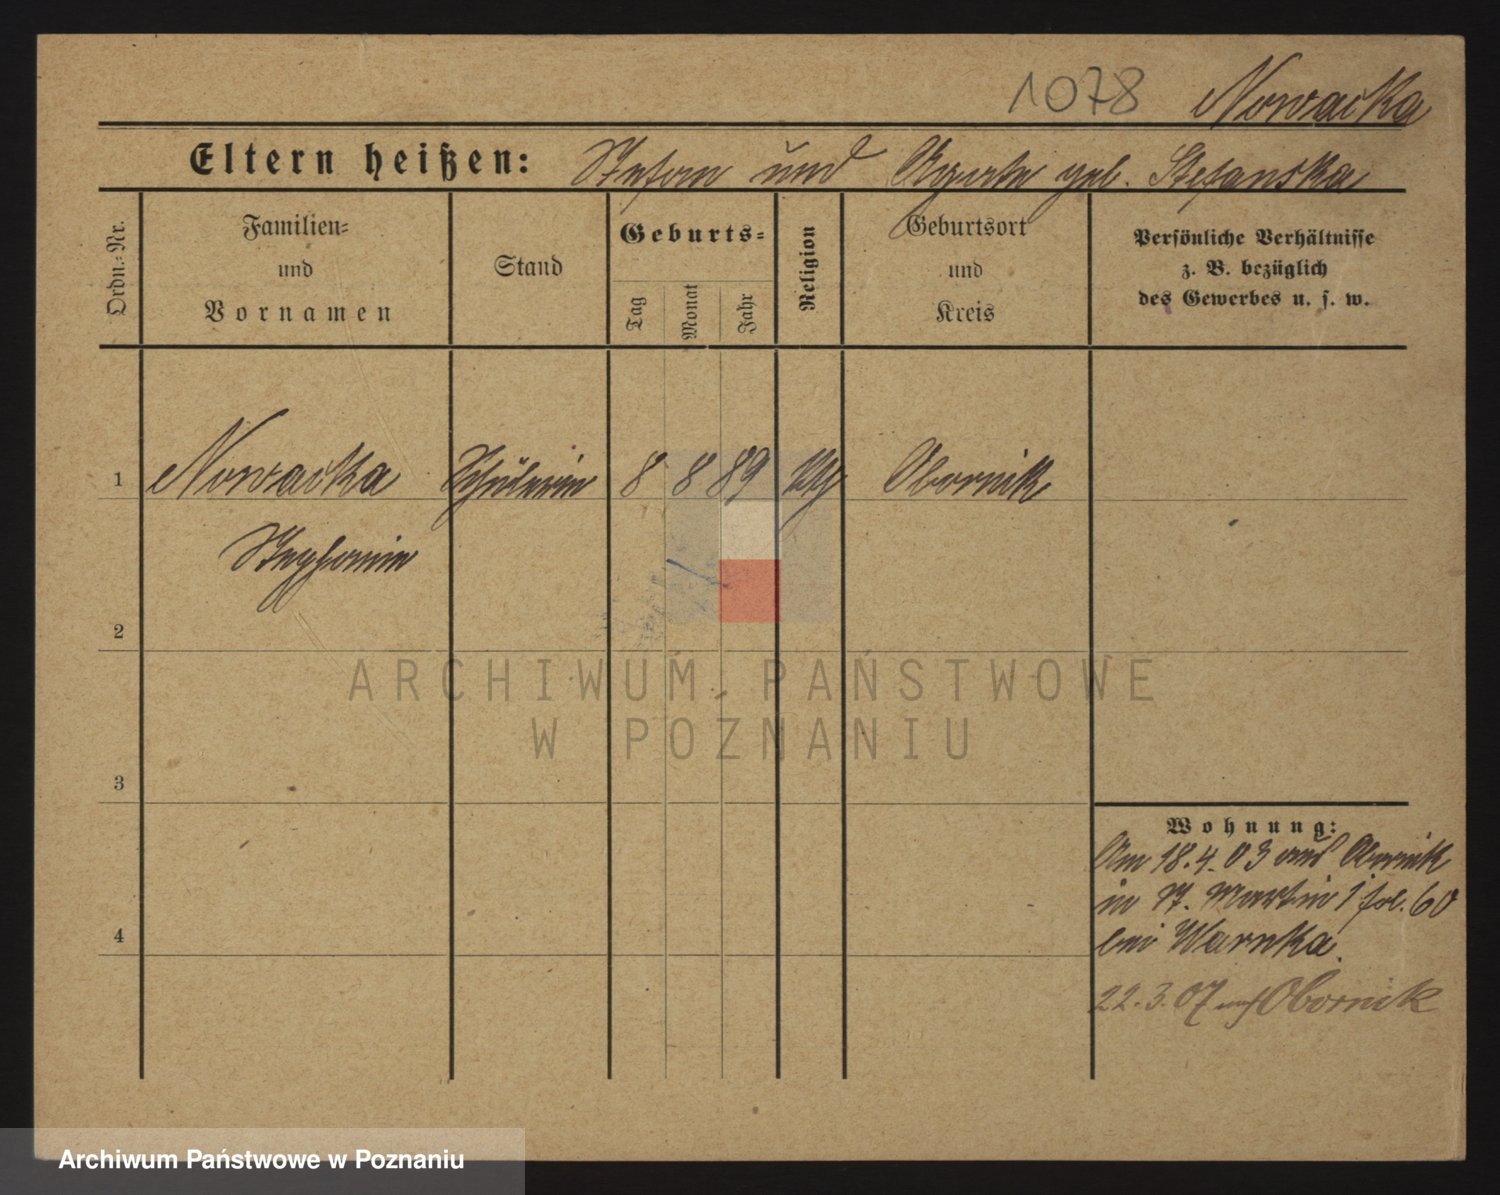 1078 Nowacka
Eltern heißen: Stefan und Agathe geb. Stefanska
Ordn.-Nr.
Familien-
und
Vornamen
Stand
Geburts-
Tag
Monat
Jahr
Religion
Geburtsort
und
Kreis
Persönliche Verhältnisse
z. B. bezüglich
des Gewerbes u. s. w.
1 Nowacka Schülerin 8 8 89 Obornik
Stephanie
2
3
4
ARCHIWUM PAŃSTWOWE
W POZNANIU
Wohnung:
Am 18.4.03 aus Obornik
in St. Martin 1 fol. 60
bei Warnka.
22.3.07 nach Obornik
Archiwum Państwowe w Poznaniu